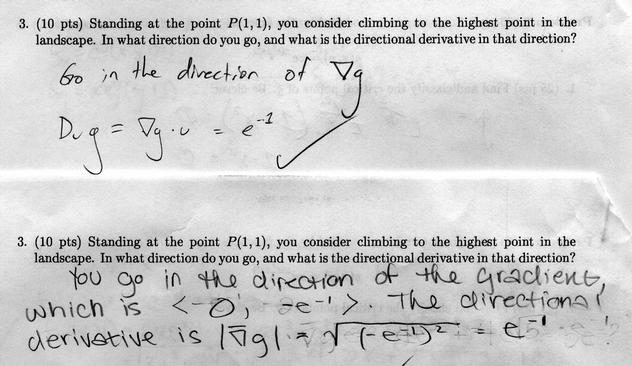 3. (10 pts) Standing at the point P(1,1), you consider climbing to the highest point in the
landscape. In what direction do you go, and what is the directional derivative in that direction?
Go in the direction of ∇g
Dᵤg = ∇g·u = e⁻¹
3. (10 pts) Standing at the point P(1,1), you consider climbing to the highest point in the
landscape. In what direction do you go, and what is the directional derivative in that direction?
You go in the direction of the gradient,
which is <-0, -e⁻¹>. The directional
derivative is |∇g| = √(-e⁻¹)² = e⁻¹